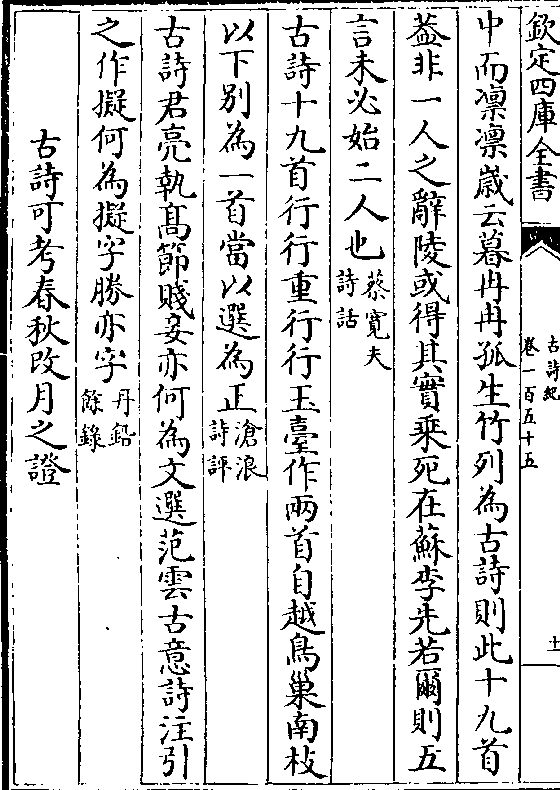 欽定四庫全書
古詩紀
卷一百五十五
十
中而凛凛嵗云暮冉冉孤生竹列為古詩則此十九首
葢非一人之辭陵或得其實乗死在蘇李先若爾則五
言未必始二人也蔡寛夫詩話
古詩十九首行行重行行玉臺作兩首自越鳥巢南枝
以下别為一首當以選為正滄浪詩評
古詩君亮執髙節賤妾亦何為文選范雲古意詩注引
之作擬何為擬字勝亦字丹鉛餘錄
古詩可考春秋改月之證